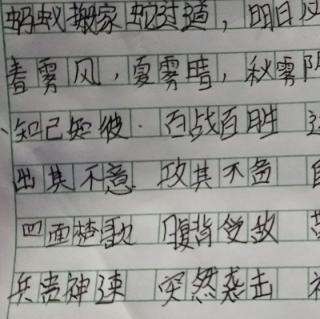 蚂蚁搬家蛇过道，明日
春雾风，夏雾晴，秋雾阴
知己知彼.百战百胜
出其不意 攻其不备
四面楚歌 腹背受敌
兵贵神速 突然袭击